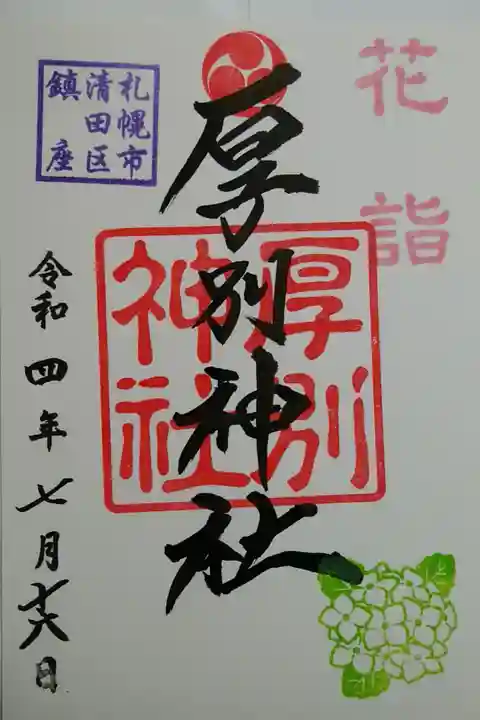 花詣
厚別神社
厚別
神社
札幌市
清田区
鎮座
令和四年七月十六日